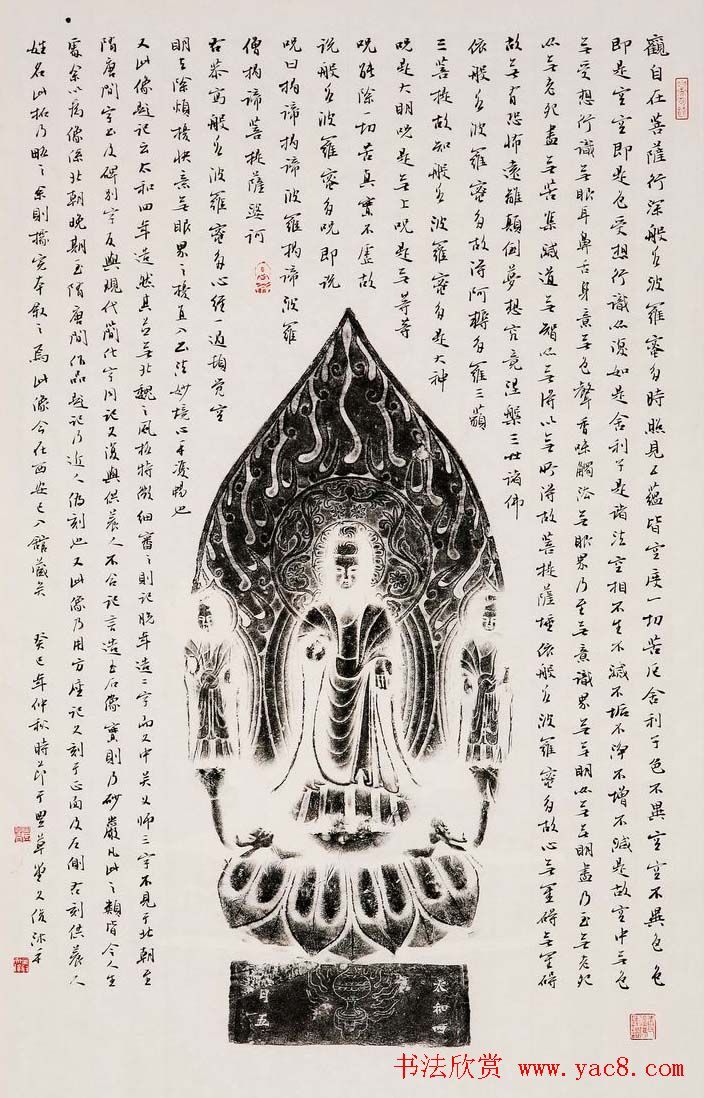 觀自在菩薩行深般若波羅蜜多時照見五蘊皆空度一切苦厄舍利子色不異空空不異色色
即是空空即是色受想行識亦復如是舍利子是諸法空相不生不滅不垢不淨不增不減是故空中無色
無受想行識無眼耳鼻舌身意無色聲香味觸法無眼界乃至無意識界無無明亦無無明盡乃至無老死
亦無老死盡無苦集滅道無智亦無得以無所得故菩提薩埵依般若波羅蜜多故心無罣礙無罣礙
故無有恐怖遠離顛倒夢想究竟涅槃三世諸佛
依般若波羅蜜多故得阿耨多羅三藐
三菩提故知般若波羅蜜多是大神
呪是大明呪是無上呪是無等等
呪能除一切苦真實不虛故
說般若波羅蜜多呪即說
呪曰揭諦揭諦波羅揭諦波羅
僧揭諦菩提薩婆訶
右恭寫般若波羅蜜多心經一過頓覺空
明且除煩擾快意無眼界之擾直入正法妙境心手雙暢也
又此像題記云太和四年造然其無北魏之風格特徵細審之則記脫年造二字而又中關父師三字不見于北朝至
隋唐間字書及碑別字反與現代簡化字同記又復與供養人不合記言造玉石像實則乃砂巖凡此之類皆令人生
疑余以為像係北朝晚期至隋唐間作品題記乃近人偽刻也又此像乃用方座記又刻于正面及左側右刻供養人
姓名此拓乃略之余則據實本敘之焉此像今在西安已入館藏矣 癸巳年仲秋時節于墨草堂又後沐手
太和四
月五
书法欣赏 www.yac8.com